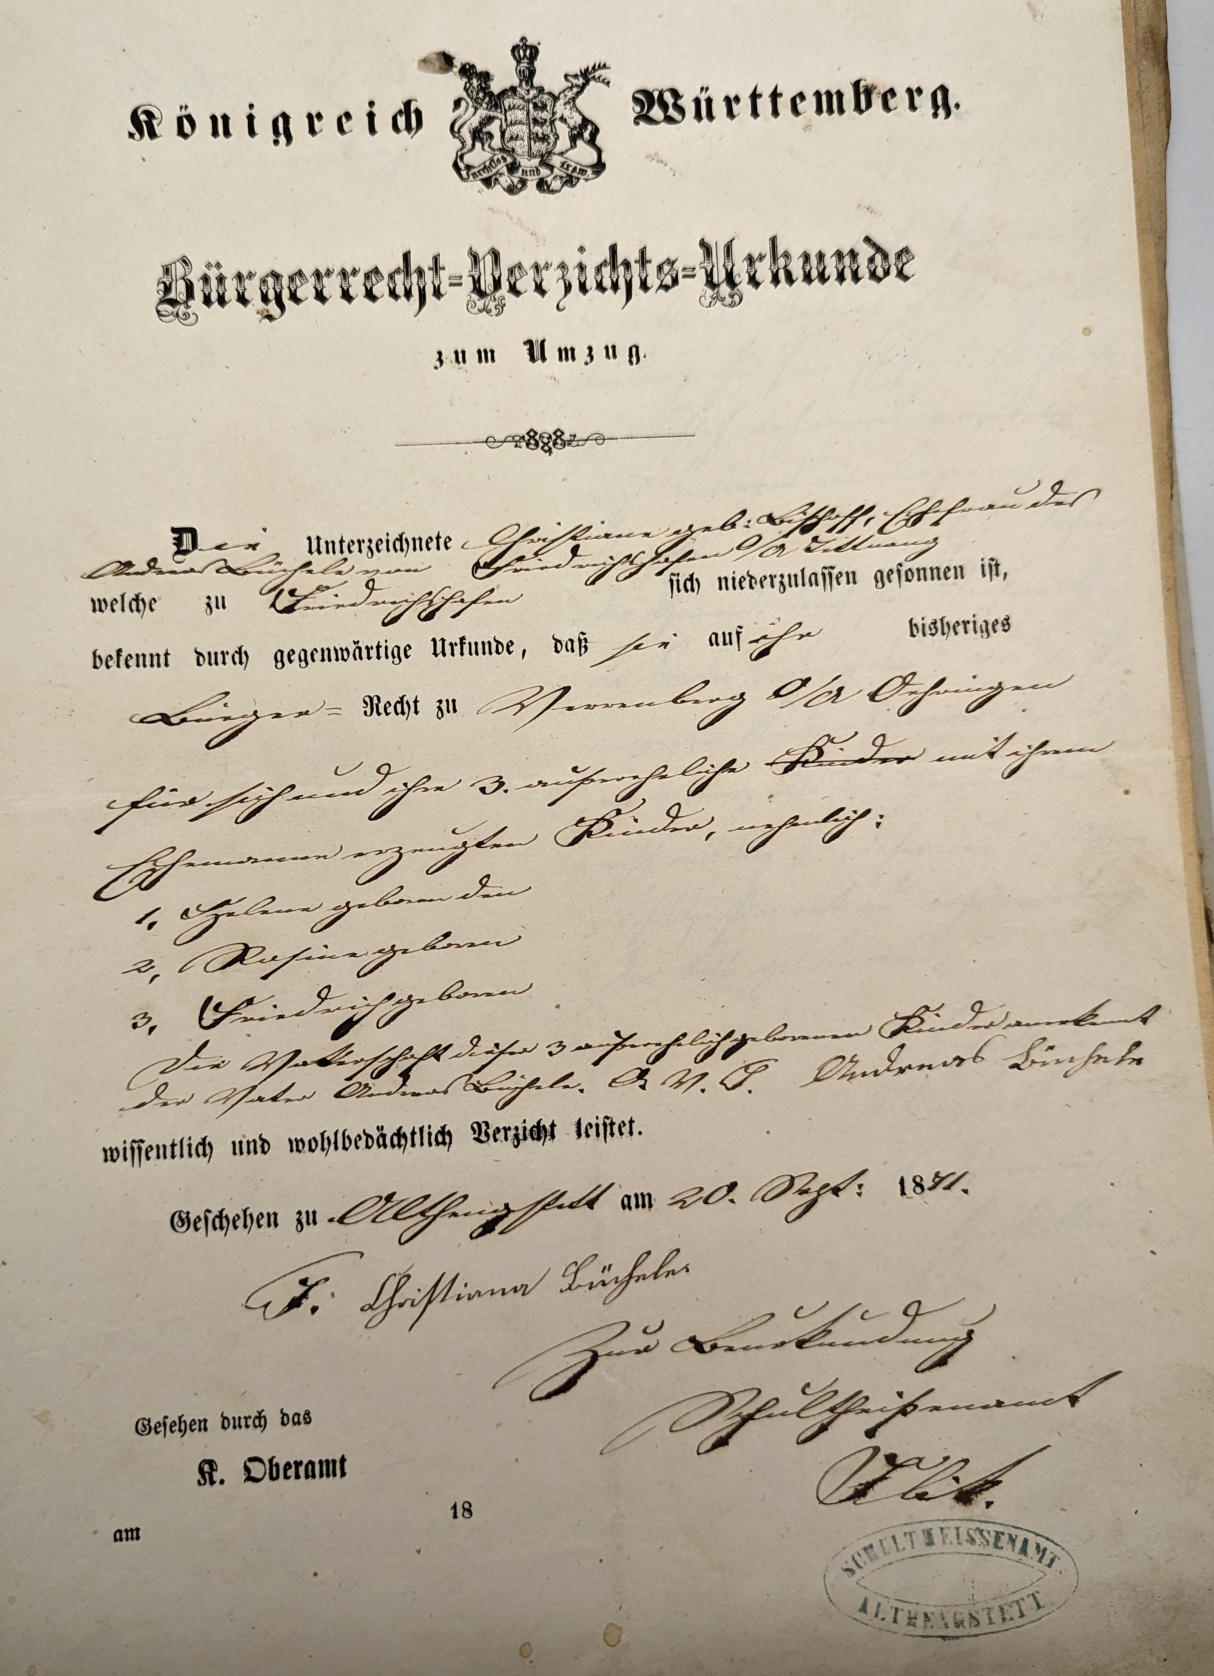 Königreich Württemberg.
Furchtlos und trew.
Bürgerrecht-Verzichts-Urkunde
zum Umzug.
Die Unterzeichnete Christiane geb: Bischoff, Ehefrau des
Andreas Büchele von Friedrichshafen O/A Tettnang
welche zu Friedrichshafen sich niederzulassen gesonnen ist,
bekennt durch gegenwärtige Urkunde, daß sie auf ihr bisheriges
Bürger= Recht zu Verrenberg O/A Oehringen
für sich und ihre 3. außereheliche Kinder mit ihrem
Ehemanne erzeugten Kinder, nehmlich:
1. Helene geboren den
2, Rosine geboren
3, Friedrich geboren
Die Vaterschaft dieser 3 außerehelich geborenen Kinder anerkennt
der Vater Andreas Büchele. Andreas Büchele
wissentlich und wohlbedächtlich Verzicht leistet.
Geschehen zu Althengstett am 20. Sept: 1871.
T. Christiana Büchele
Zur Beurkundung
Schultheißenamt
Gesehen durch das
K. Oberamt
am 18
SCHULTHEISSENAMT
ALTHENGSTETT